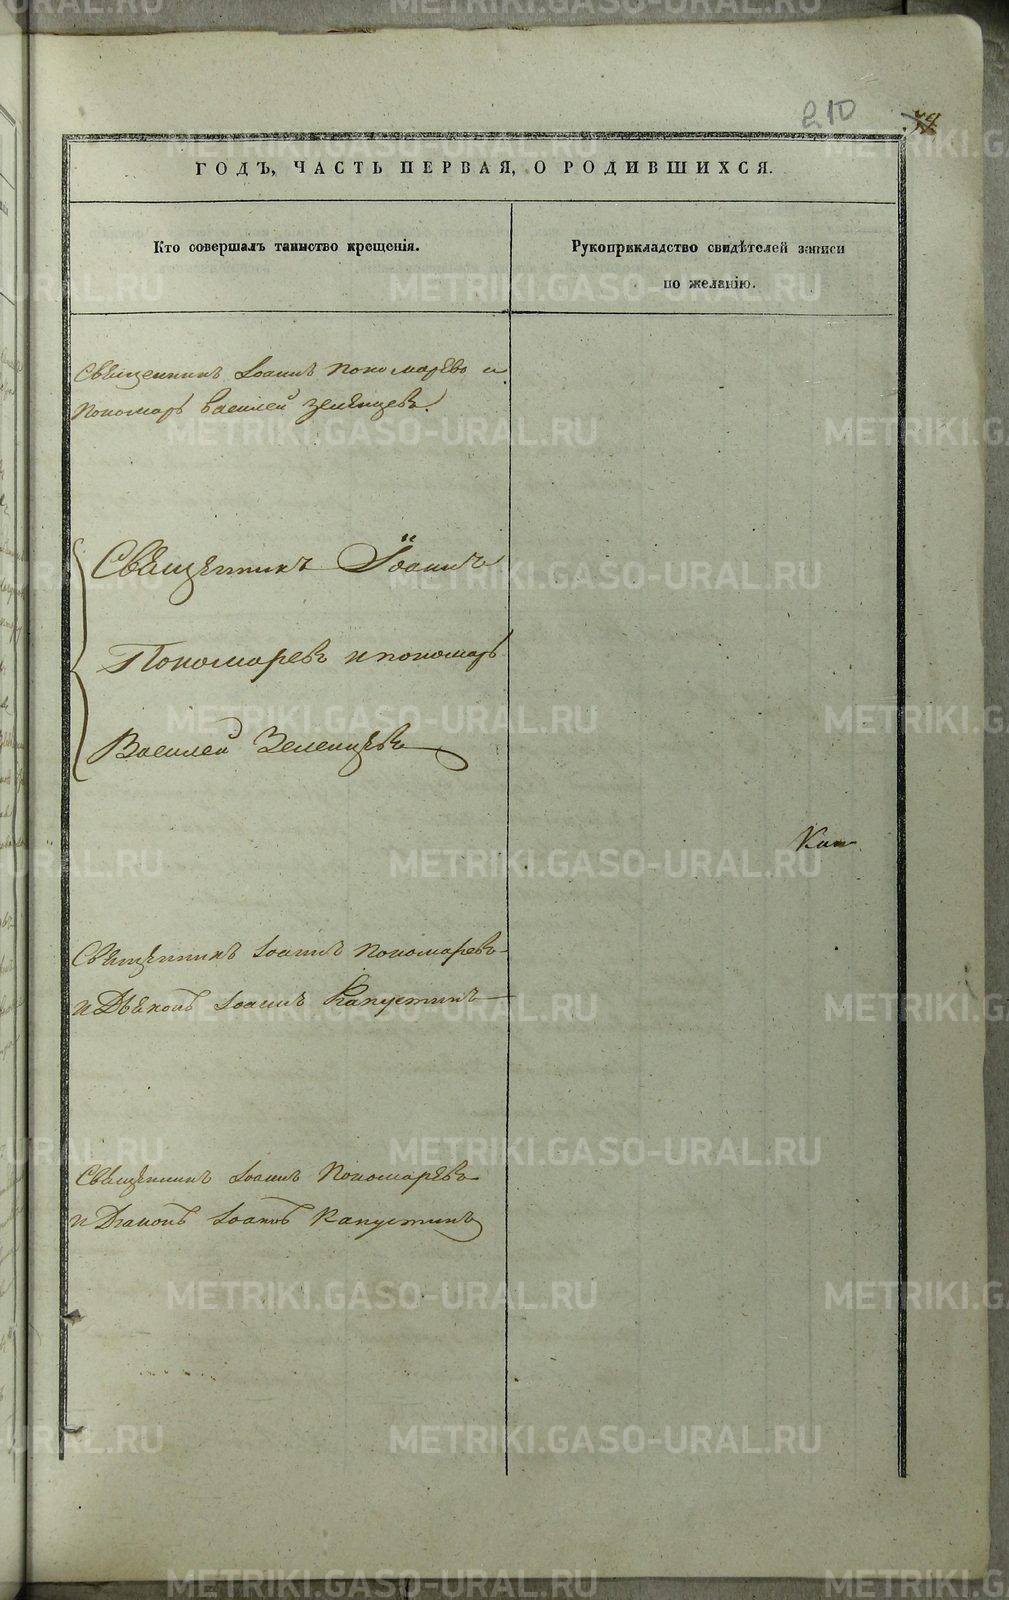 210
ГОДЪ, ЧАСТЬ ПЕРВАЯ, О РОДИВШИХСЯ.
Кто совершалъ таинство крещенія.
Рукоприкладство свидѣтелей записи
по желанію.
Священникъ Іоаннъ Пономаревъ и
пономарь Василей Зеленцевъ.
Священникъ Іоаннъ
Пономаревъ и пономарь
Василей Зеленцевъ
Священникъ Іоаннъ Пономаревъ
и Дьяконъ Іоаннъ Капустинъ
Священникъ Іоаннъ Пономаревъ
и Диаконъ Іоаннъ Капустинъ
METRIKI.GASO-URAL.RU